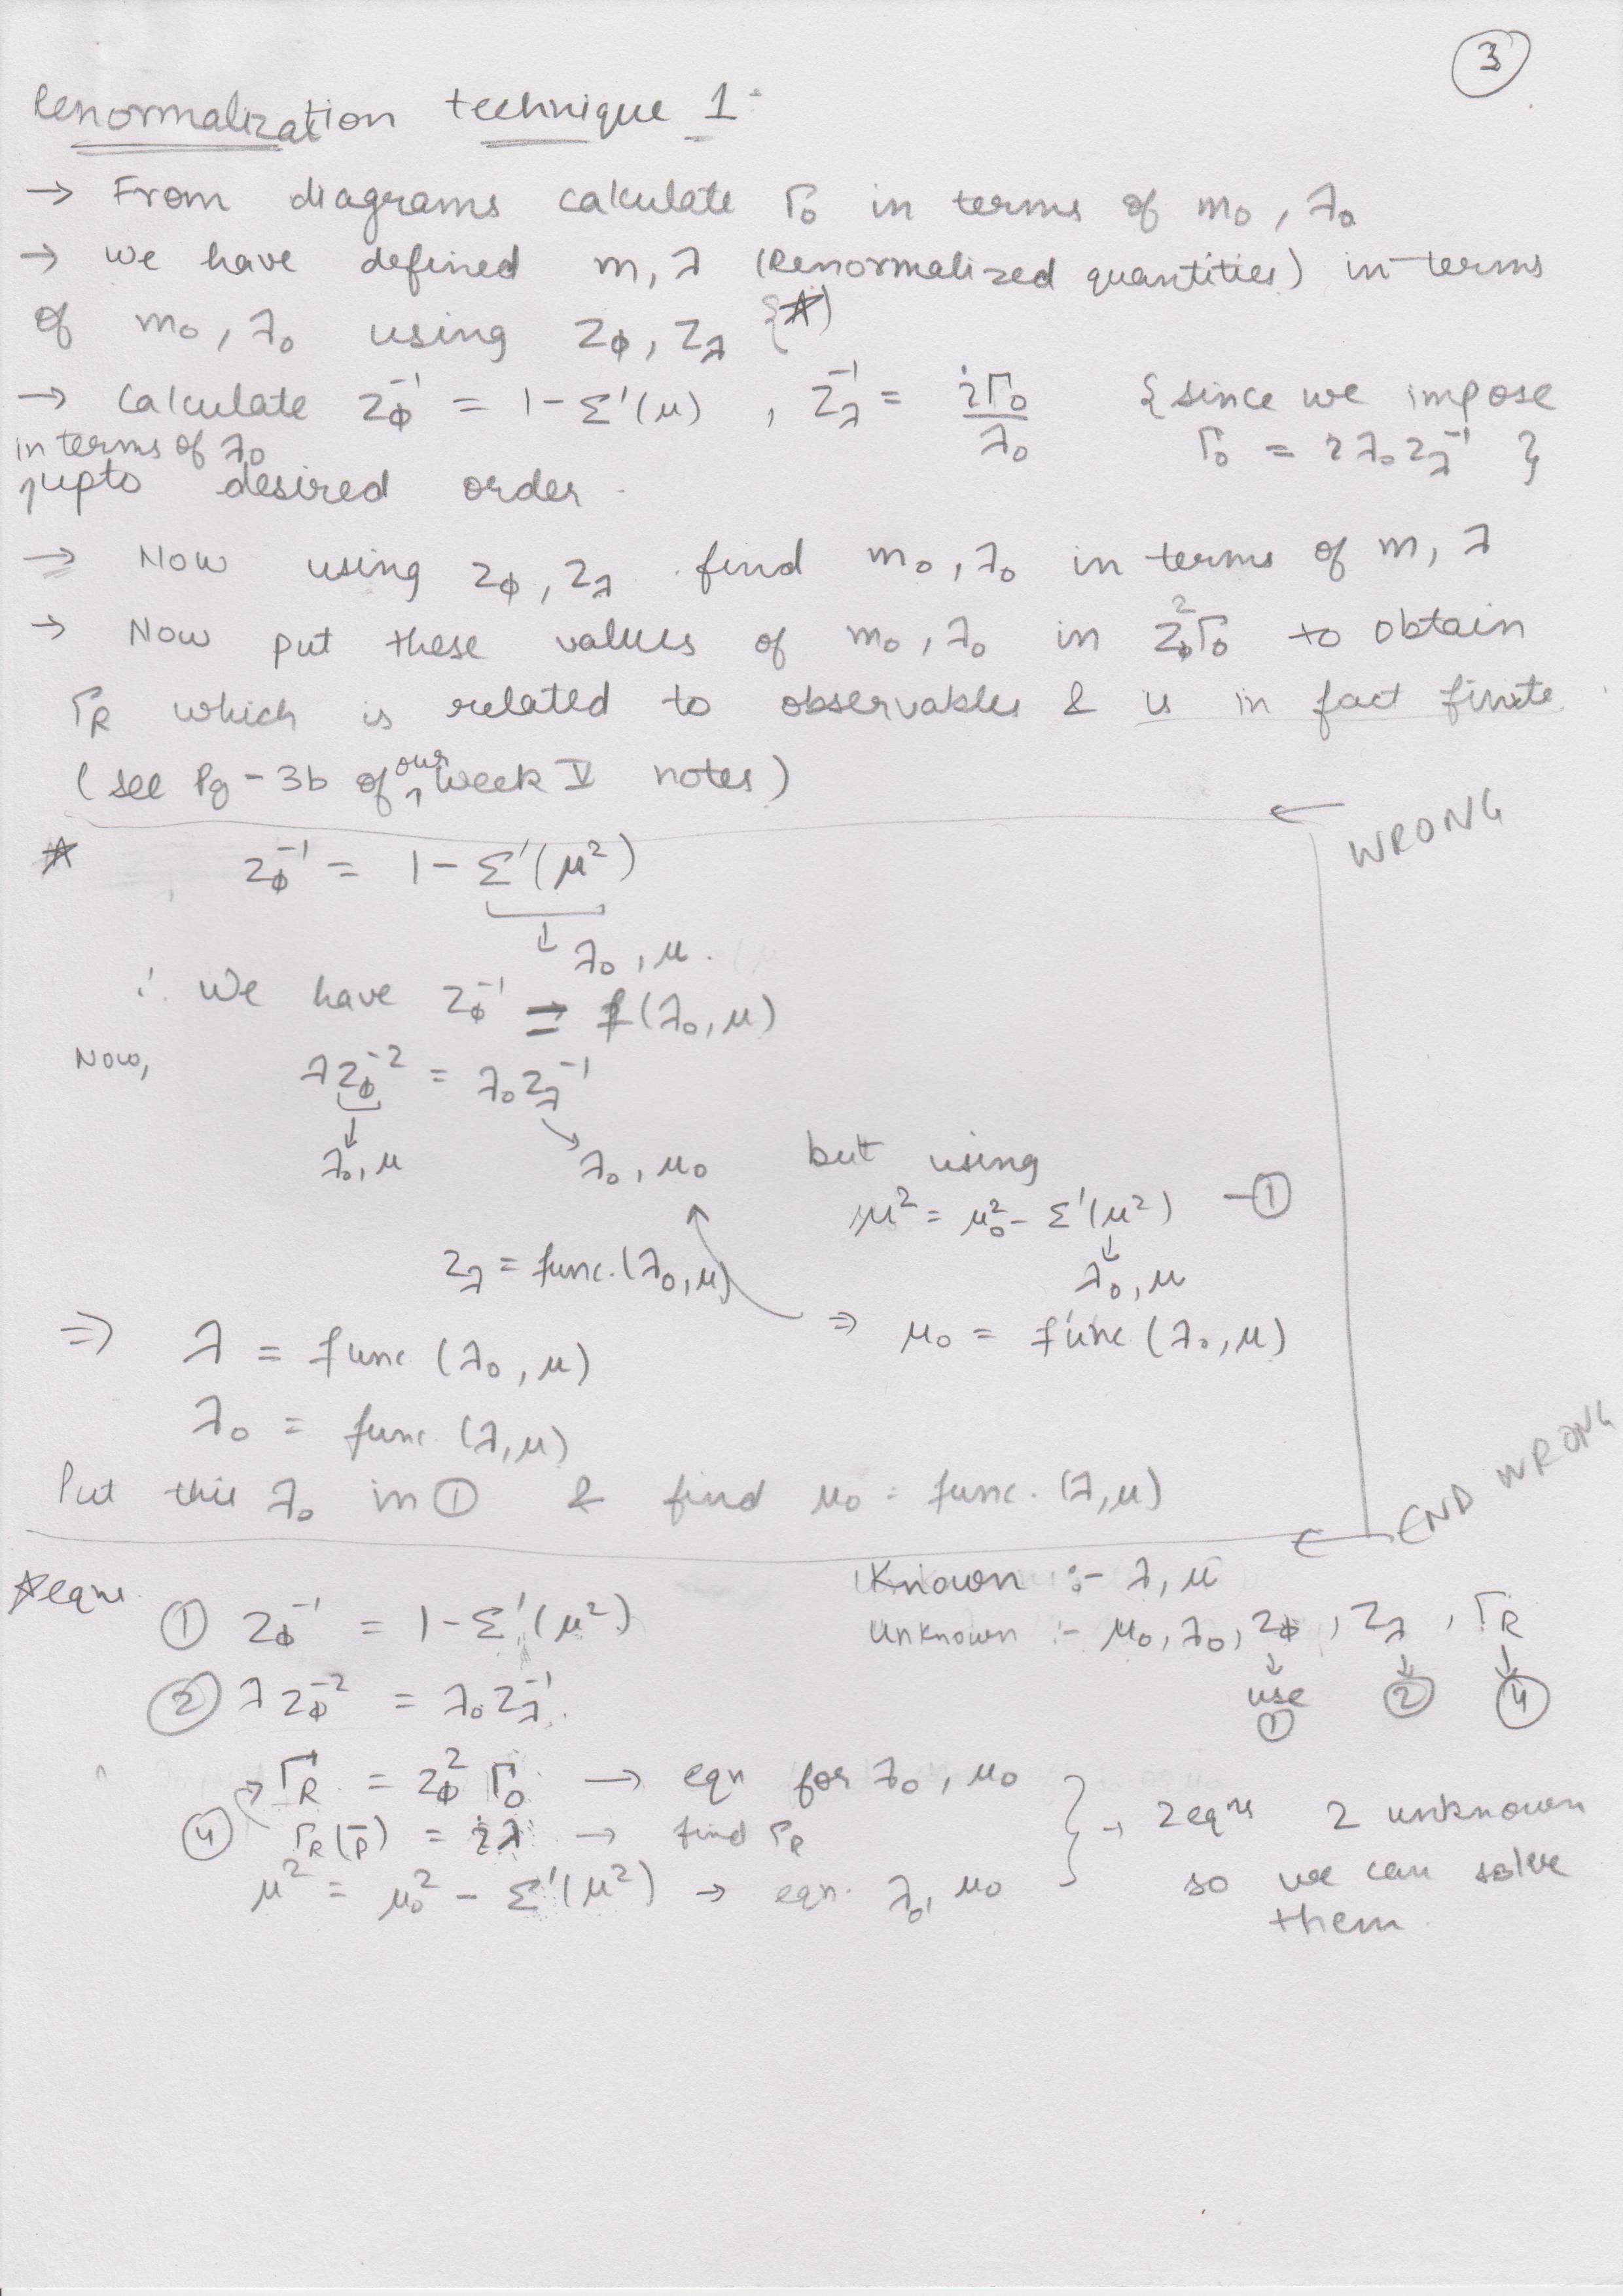 3
Renormalization technique 1:
→ From diagrams calculate Γ₀ in terms of m₀, λ₀
→ we have defined m, λ (Renormalized quantities) in terms
of m₀, λ₀ using Z_ϕ, Z_λ {☆}
→ Calculate Z_ϕ⁻¹ = 1 - Σ'(μ) , Z_λ⁻¹ = iΓ₀/λ₀ {since we impose
in terms of λ₀ Γ₀ = iλ₀Z_λ⁻¹ }
upto desired order.
→ Now using Z_ϕ, Z_λ find m₀, λ₀ in terms of m, λ
→ Now put these values of m₀, λ₀ in Z_ϕ²Γ₀ to obtain
Γ_R which is related to observables & is in fact finite
(see Pg-3b of our week V notes)
← WRONG
☆ Z_ϕ⁻¹ = 1 - Σ'(μ²)
↓ λ₀, μ.
∴ We have Z_ϕ⁻¹ = f(λ₀, μ)
Now, λZ_ϕ⁻² = λ₀Z_λ⁻¹
↓ λ₀, μ ↘ λ₀, μ₀ but using
μ² = μ₀² - Σ'(μ²) —①
↓ λ₀, μ
Z_λ = func.(λ₀, μ)
⇒ μ₀ = func (λ₀, μ)
⇒ λ = func (λ₀, μ)
λ₀ = func. (λ, μ)
Put this λ₀ in ① & find μ₀ = func. (λ, μ)
← END WRONG
☆ eqns. Known :- λ, μ
① Z_ϕ⁻¹ = 1 - Σ'(μ²) Unknown :- μ₀, λ₀, Z_ϕ, Z_λ, Γ_R
↓ use ① ↓ ② ↓ ④
② λZ_ϕ⁻² = λ₀Z_λ⁻¹.
Γ_R = Z_ϕ² Γ₀ → eqn for λ₀, μ₀
④ Γ_R(p̄) = iλ → find Γ_R } → 2 eqns 2 unknown
μ² = μ₀² - Σ'(μ²) → eqn. λ₀, μ₀ so we can solve
them.